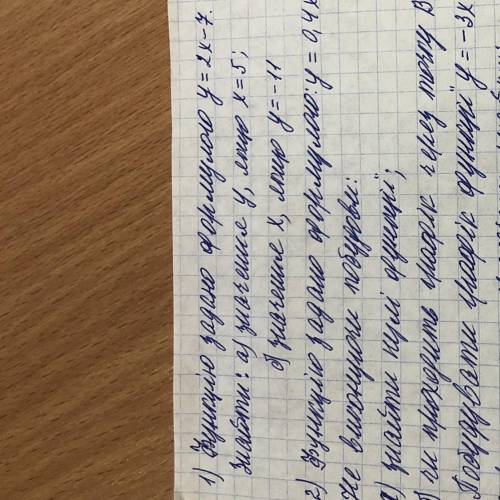 1) Функцію задано формулою y=2x-7.
Знайти: а) значення y, якщо x=5;
б) значення x, якщо y=-11
2) Функцію задано формулою: y=0,4x
Не виконуючи побудови:
а) знайти нулі функції;
чи проходить графік через точку B
Побудувати графік функції y=-3x